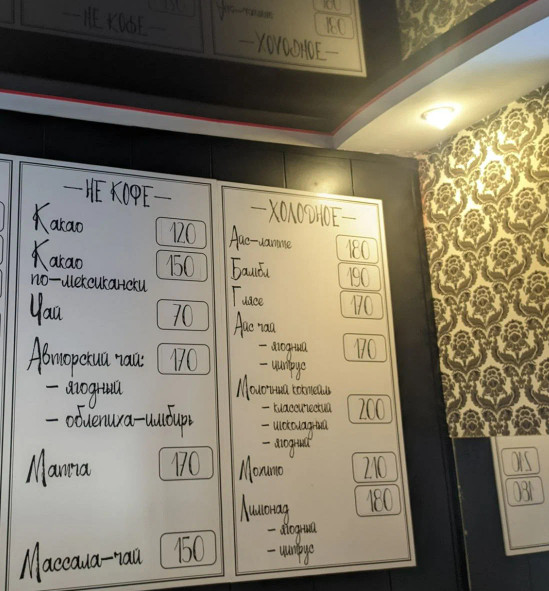 — НЕ КОФЕ —
Какао 120
Какао 150
по-мексикански
Чай 70
Авторский чай: 170
– ягодный
– облепиха-имбирь
Матча 170
Массала-чай 150
— ХОЛОДНОЕ —
Айс-латте 180
Бамбл 190
Глясе 170
Айс чай 170
– ягодный
– цитрус
Молочный коктейль
– классический 200
– шоколадный
– ягодный
Мохито 210
Лимонад 180
– ягодный
– цитрус